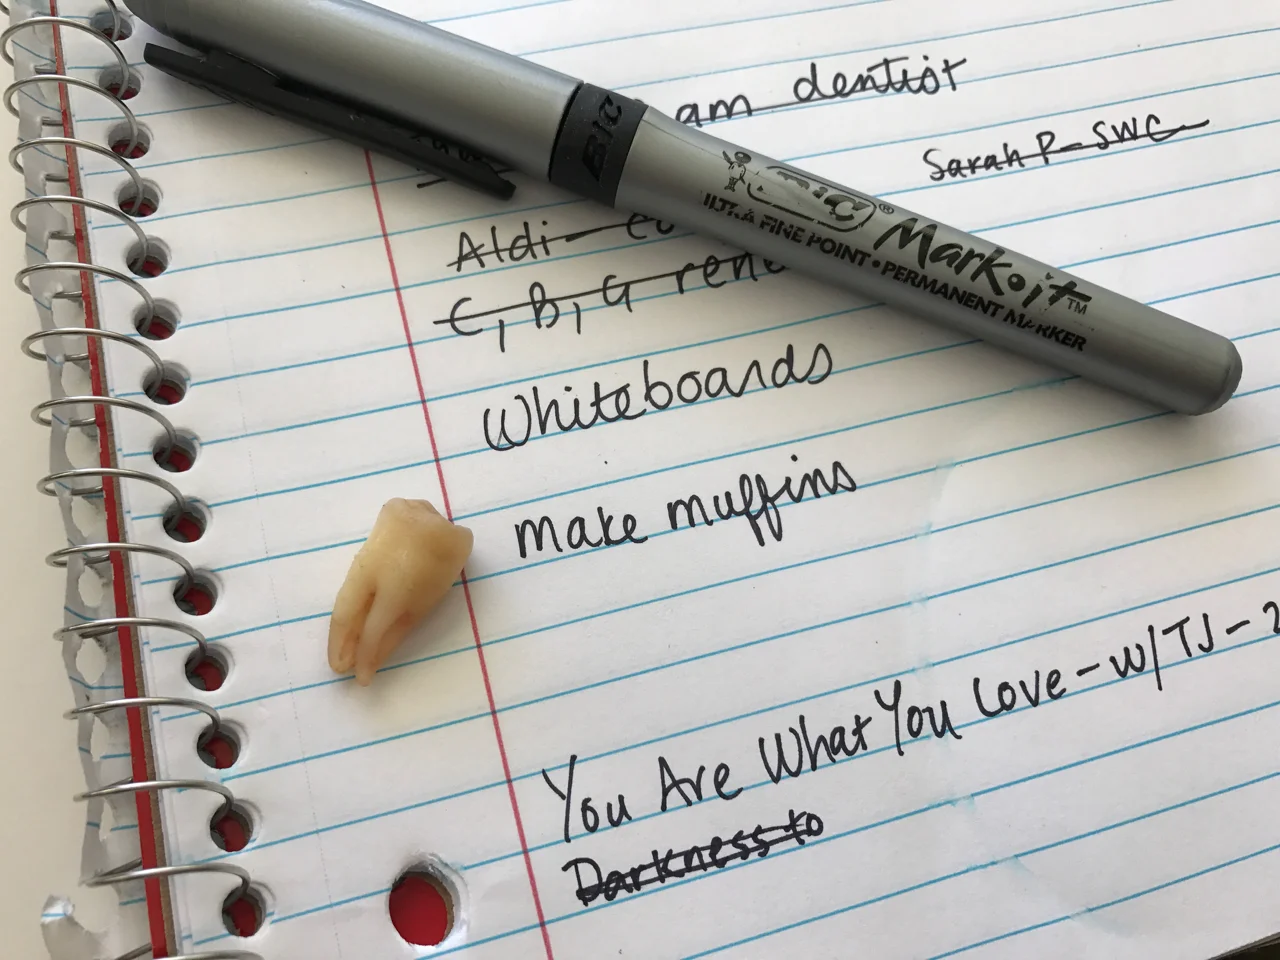 am dentist
Sarah P - SWC
Aldi -
C, B, G
Whiteboards
make muffins
You Are What You Love - W/TJ - 2
Darkness to
BIC
BIC® Mark•it™
ULTRA FINE POINT • PERMANENT MARKER